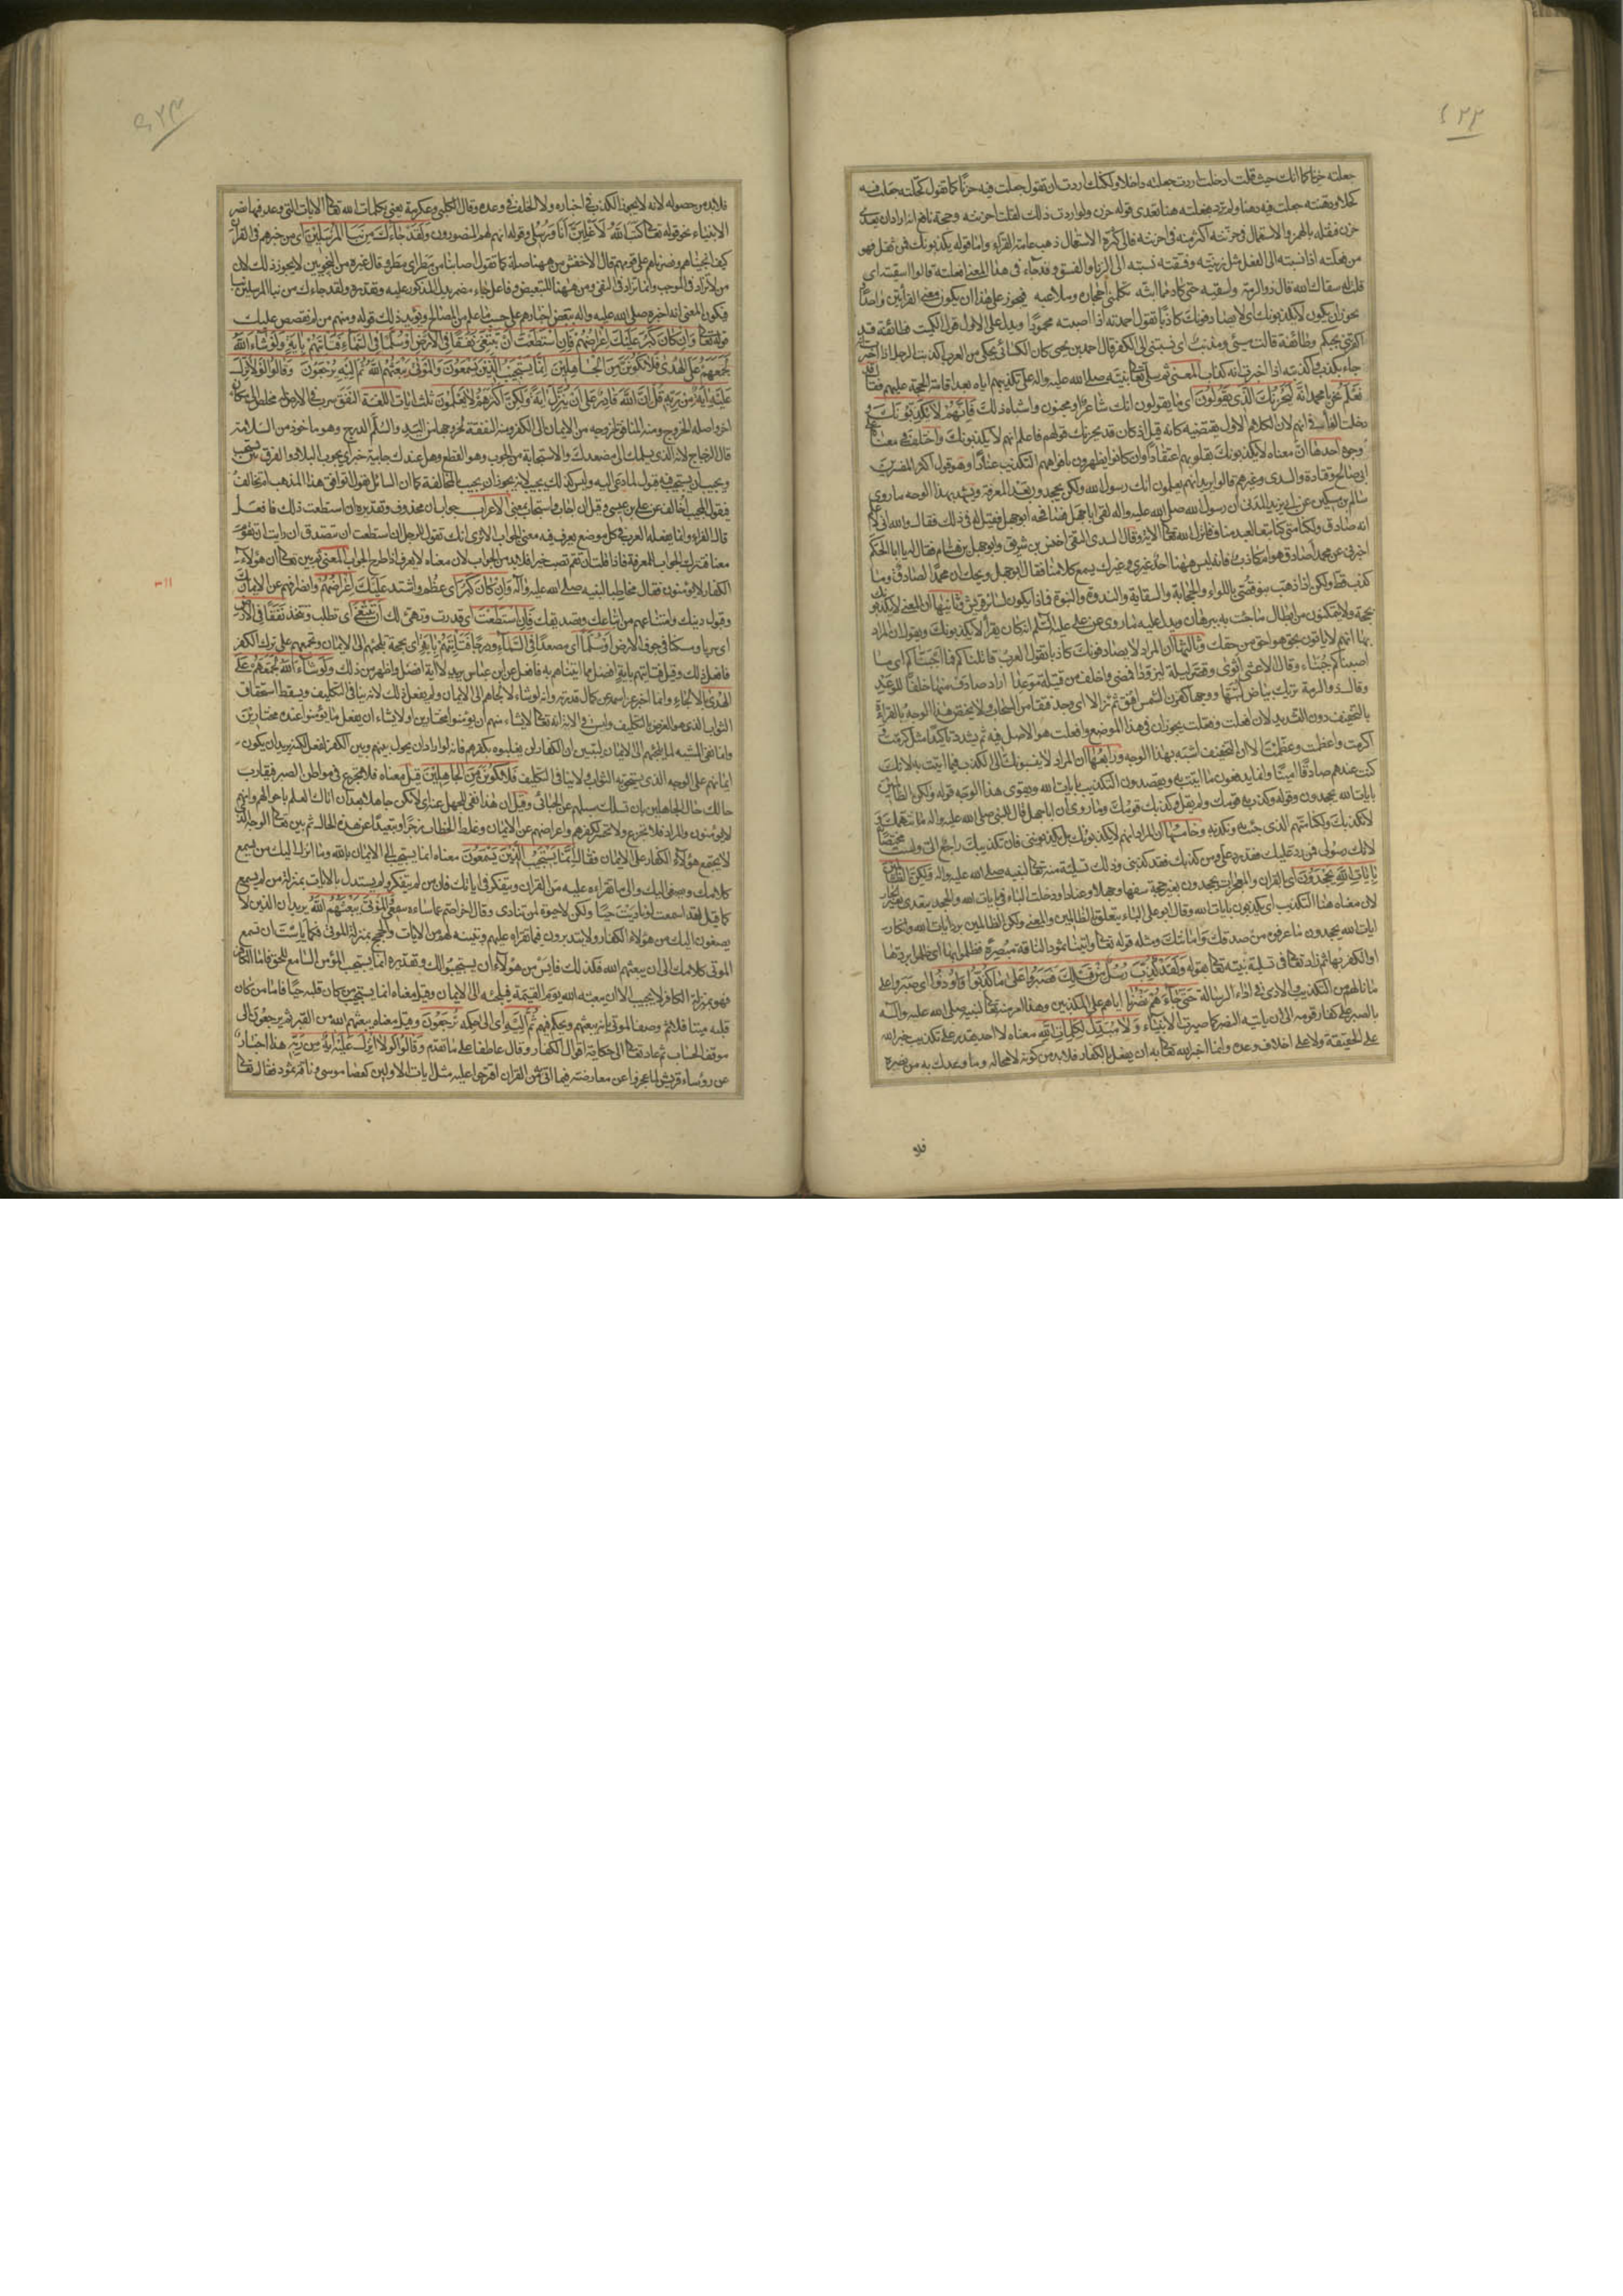 ٤٢٢
جعلته حزنا كما انك حيث قلت ادخلت اردت جعلته داخلا ولكنك اردت ان تقول جعلت فيه حزنا كما تقول كحلته جعلت فيه
كحلا ودهنته جعلت فيه دهنا ولم ترد بفعلته هنا تعدى قوله حزن ولو اردت ذلك لقلت احزنته وحجة نافع انه اراد ان يعدى
حزن فنقله بالهمز والاستعمال فى حزنته اكثر منه فى احزنته فالى كثرة الاستعمال ذهب عامة القراء واما قوله يكذبونك فمن ثقل فهو
من فعلته اذا نسبته الى الفعل مثل زنيته وفسقته نسبته الى الزنا والفسق وقد جاء فى هذا المعنى افعلته قالوا اسقيته اى
قلت له سقاك الله قال ذو الرمة واسقيه حتى كاد مما ابثه تكلمنى احجاره وملاعبه فيجوز على هذا ان يكون معنى القرائتين واحدا
يجوز ان يكون لا يكذبونك اى لا يصادفونك كاذبا تقول احمدته اذا اصبته محمودا ويدل على الاول قول الكميت فطائفة قد
اكفرتنى بحبكم وطائفة قالت مسئ ومذنب اى نسبتنى الى الكفر قال احمد بن يحيى كان الكسائى يحكى عن العرب اكذبت الرجل اذا اخبرت
جاء بكذب وكذبته اذا اخبرت انه كذاب المعنى ثم سلى تعالى نبيه صلى الله عليه واله على تكذيبهم اياه بعد اقامة الحجة عليهم فقال
نعلم نحن يا محمد انه ليحزنك الذى يقولون اى ما يقولون انك شاعر او مجنون واشباه ذلك فانهم لا يكذبونك
دخلت الفاء فى انهم لان الكلام الاول يقتضيه كانه قيل اذ كان قد يحزنك قولهم فاعلم انهم لا يكذبونك واختلف فى معناه على
وجوه احدها ان معناه لا يكذبونك بقلوبهم اعتقادا وان كانوا يظهرون بافواههم التكذيب عنادا وهو قول اكثر المفسرين
ابى صالح وقتادة والسدى وغيرهم قالوا يريد انهم يعلمون انك رسول الله ولكن يجحدون بعد المعرفة ويشهد بهذا الوجه ما روى
سلام بن مسكين عن ابى يزيد المدنى ان رسول الله صلى الله عليه واله لقى ابا جهل فصافحه ابو جهل فقيل له فى ذلك فقال والله انى لاعلم
انه صادق ولكنا متى كنا تبعا لعبد مناف فانزل الله تعالى الاية وقال السدى التقى اخنس بن شريق وابو جهل بن هشام فقال له يا ابا الحكم
اخبرنى عن محمد اصادق هو ام كاذب فانه ليس ههنا احد غيرى وغيرك يسمع كلامنا فقال ابو جهل ويحك ان محمدا لصادق وما
كذب قط ولكن اذا ذهب بنو قصى باللواء والحجابة والسقاية والندوة والنبوة فماذا يكون لسائر قريش وثانيها ان المعنى لا يكذبونك
بحجة ولا يتمكنون من ابطال ما جئت به ببرهان ويدل عليه ما روى عن على عليه السلم انه كان يقرأ لا يكذبونك ويقول ان المراد
بها انهم لا ياتون بحق هو احق من حقك وثالثها ان المراد لا يصادفونك كاذبا تقول العرب قاتلناكم فما اجبناكم اى ما
اصبناكم جبناء وقال الاعشى اثوى وقصر ليلة ليزودا فمضى واخلف من قتيلة موعدا اراد صادف منها خلفا للوعد
وقال ذو الرمة تريك بياض لبتها ووجها كقرن الشمس افتق ثم زالا اى وجد فتقا من السحاب ولا يختص هذا الوجه بالقراءة
بالتخفيف دون التشديد لان افعلت وفعلت يجوزان فى هذا الموضع وافعلت هو الاصل فيه ثم يشدد تاكيدا مثل كرمت و
اكرمت واعظمت وعظمت الا ان التخفيف اشبه بهذا الوجه ورابعها ان المراد لا ينسبونك الى الكذب فيما اتيت به لانك
كنت عندهم صادقا امينا وانما يدفعون ما اتيت به ويقصدون التكذيب بايات الله ويقوى هذا الوجه قوله ولكن الظالمين
بايات الله يجحدون وقوله وكذب به قومك ولم يقل وكذبك قومك وما روى ان ابا جهل قال للنبى صلى الله عليه واله ما نتهمك و
لا نكذبك ولكنا نتهم الذى جئت به ونكذبه وخامسها ان المراد انهم لا يكذبونك بل يكذبوننى فان تكذيبك راجع الى ولست مختصا به
لانك رسولى فمن رد عليك فقد رد على ومن كذبك فقد كذبنى وذلك تسلية منه تعالى لنبيه صلى الله عليه واله ولكن الظالمين
بايات الله يجحدون اى بالقران والمعجزات يجحدون بغير حجة سفها وجهلا وعنادا ودخلت الباء فى بايات الله والجحد يتعدى بغير الجار
لان معناه هنا التكذيب اى يكذبون بايات الله وقال ابو على الباء يتعلق بالظالمين والمعنى ولكن الظالمين برد ايات الله وانكار
ايات الله يجحدون ما عرفوه من صدقك وامانتك ومثله قوله تعالى واتينا ثمود الناقة مبصرة فظلموا بها اى ظلموا بردها
او الكفر بها ثم زاد تعالى فى تسلية نبيه تعالى بقوله ولقد كذبت رسل من قبلك فصبروا على ما كذبوا واوذوا اى صبروا على
ما نالهم من التكذيب والاذى فى اداء الرسالة حتى جاءهم نصرنا اياهم على المكذبين وهذا امر منه تعالى لنبيه صلى الله عليه واله
بالصبر على كفار قومه الى ان ياتيه النصر كما صبرت الانبياء ولا مبدل لكلمات الله معناه لا احد يقدر على تكذيب خبر الله
على الحقيقة ولا على اخلاف وعده وانما اخبر الله تعالى به ان يفعل بالكفار فلا بد من كونه لا محالة وما وعدك به من نصره
فلا
٤٢٣
فلا بد من حصوله لانه لا يجوز الكذب فى اخباره ولا الخلف فى وعده وقال الكلبى وعكرمة يعنى بكلمات الله تعالى الايات التى وعد فيها نصر
الانبياء نحو قوله تعالى كتب الله لاغلبن انا ورسلى وقوله انهم لهم المنصورون ولقد جاءك من نبا المرسلين اى من خبرهم فى القران
كيف انجيناهم ونصرناهم على قومهم قال الاخفش من ههنا صلة كما تقول اصابنا من مطر اى مطر وقال غيره من النحويين لا يجوز ذلك لان
من لا تزاد فى الموجب وانما تزاد فى النفى ومن ههنا للتبعيض وفاعل جاء مضمر يدل المذكور عليه وتقديره ولقد جاءك من نبا المرسلين نبا
فيكون المعنى انه اخبره صلى الله عليه واله ببعض اخبارهم على حسب ما علم من المصالح ويؤيد ذلك قوله ومنهم من لم نقصص عليك
قوله تعالى وان كان كبر عليك اعراضهم فان استطعت ان تبتغى نفقا فى الارض او سلما فى السماء فتاتيهم باية ولو شاء الله
لجمعهم على الهدى فلا تكونن من الجاهلين انما يستجيب الذين يسمعون والموتى يبعثهم الله ثم اليه يرجعون وقالوا لولا نزل
عليه اية من ربه قل ان الله قادر على ان ينزل اية ولكن اكثرهم لا يعلمون ثلث ايات اللغة النفق سرب فى الارض له مخلص الى مكان
اخر واصله الخروج ومنه المنافق لخروجه من الايمان الى الكفر ومنه النفقة لخروجها من اليد والسلم الدرج وهو ماخوذ من السلامة
قال الزجاج لانه الذى يسلمك الى مصعدك والاستجابة من الجوب وهو القطع وهل عندك جايبة خبر اى يجوب البلاد والفرق بين يستجيب
ويجيب ان يستجيب فيه قبول لما دعى اليه وليس كذلك يجيب لانه يجوز ان يجيب بالمخالفة كما ان السائل يقول اتوافق هذا المذهب ام تخالف
فيقول المجيب اخالف عن على بن عيسى وقيل ان اجاب واستجاب بمعنى الاعراب جواب ان محذوف وتقديره ان استطعت ذلك فافعل
قال الفراء وانما يفعله العرب فى كل موضع يعرف فيه معنى الجواب الا ترى انك تقول للرجل ان استطعت ان تتصدق ان رايت ان تقوم
معنا فتترك الجواب للمعرفة به فاذا قلت ان تقم تصب خيرا فلا بد من الجواب لان معناه لا يعرف اذا طرح الجواب المعنى ثم بين تعالى ان هؤلاء
الكفار لا يؤمنون فقال مخاطبا لنبيه صلى الله عليه واله وان كان كبر اى عظم واشتد عليك اعراضهم وانصرافهم عن الايمان
وقبول دينك وامتناعهم من اتباعك وتصديقك فان استطعت اى قدرت وتهيا لك ان تبتغى اى تطلب وتتخذ نفقا فى الارض
اى سربا ومسكنا فى جوف الارض او سلما اى مصعدا فى السماء ودرجا فتاتيهم باية اى بحجة تلجئهم الى الايمان وتجمعهم على ترك الكفر
فافعل ذلك وقيل فتاتيهم باية افضل مما اتيناهم به فافعل عن ابن عباس يريد لا اية افضل واظهر من ذلك ولو شاء الله لجمعهم على
الهدى بالالجاء وانما اخبر عز اسمه عن كمال قدرته وانه لو شاء لالجاهم الى الايمان ولم يفعل ذلك لانه ينافى التكليف ويسقط استحقاق
الثواب الذى هو الغرض بالتكليف وليس فى الاية انه تعالى لا يشاء منهم ان يؤمنوا مختارين او لا يشاء ان يفعل ما يؤمنوا عنده مختارين
وانما نفى المشية لما يلجئهم الى الايمان ليتبين ان الكفار لم يغلبوه بكفرهم فانه لو اراد ان يحول بينهم وبين الكفر لفعل لكنه يريد ان يكون
ايمانهم على الوجه الذى يستحق به الثواب ولا ينافى التكليف فلا تكونن من الجاهلين قيل معناه فلا تجزع فى مواطن الصبر فيقارب
حالك حال الجاهلين بان تسلك سبيلهم عن الجبائى وقيل ان هذا نفى للجهل عنه اى لا تكن جاهلا بعد ان اتاك العلم باحوالهم وانهم
لا يؤمنون والمراد فلا تجزع ولا تتحسر لكفرهم واعراضهم عن الايمان وغلظ الخطاب زجرا وتبعيدا عن هذه الحال ثم بين تعالى الوجه الذى
لا يجتمع هؤلاء الكفار على الايمان فقال انما يستجيب الذين يسمعون معناه انما يستجيب الى الايمان بالله وما انزل اليك من يسمع
كلامك ويصغى اليك والى ما تقراءه عليه من القران ويتفكر فى اياتك فان من لم يتفكر ولم يستدل بالايات بمنزلة من لم يسمع
كما قيل لقد اسمعت لو ناديت حيا ولكن لا حيوة لمن تنادى وقال اخر اصم عما ساءه سميع والموتى يبعثهم الله يريد ان الذين لا
يصغون اليك من هؤلاء الكفار ولا يتدبرون فيما تقراه عليهم وتبينه لهم من الايات والحجج بمنزلة الموتى فكما ايست ان تسمع
الموتى كلامك الى ان يبعثهم الله فكذلك فايس من هؤلاء ان يستجيبوا لك وتقديره انما يستجيب المؤمن السامع للحق فاما الكافر
فهو بمنزلة الميت فلا يجيب الا ان يبعثه الله يوم القيمة فيلجئه الى الايمان وقيل معناه انما يستجيب من كان قلبه حيا فاما من كان
قلبه ميتا فلا ثم وصف الموتى بانه يبعثهم ويحكم فيهم ثم اليه اى الى حكمه يرجعون وقيل معناه يبعثهم الله من القبر ثم يرجعون الى
موقف الحساب ثم عاد تعالى الى حكاية اقوال الكفار وقال عاطفا على ما تقدم وقالوا لولا انزل عليه اية من ربه هذا اخبار
عن رؤساء قريش لما عجزوا عن معارضته فيما اتى به من القران اقترحوا عليه مثل ايات الاولين كعصا موسى وناقة ثمود فقال تعالى